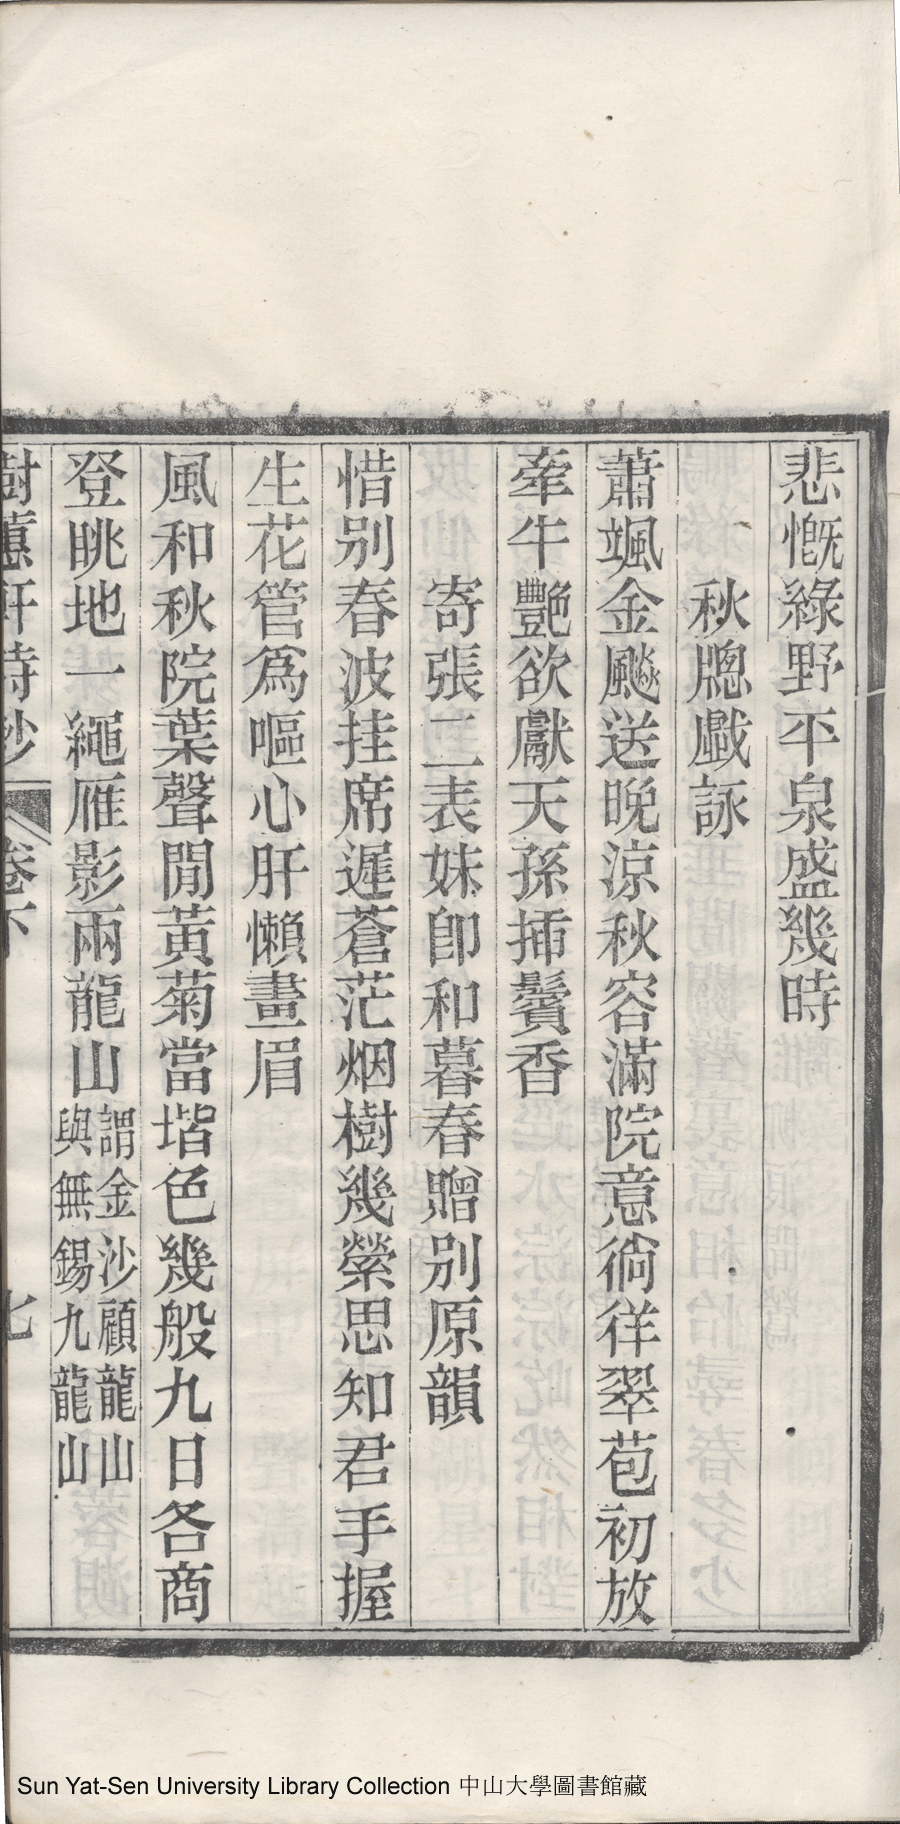 悲慨綠野平泉盛幾時
秋牕戱詠
蕭颯金飈送晚涼秋容滿院意徜徉翠苞初放
牽牛艷欲獻天孫揷鬢香
寄張二表妹卽和暮春贈別原韻
惜別春波挂席遲蒼茫烟樹幾縈思知君手握
生花管爲嘔心肝懶畫眉
風和秋院葉聲閒黃菊當堦色幾般九日各商
登眺地一繩雁影兩龍山謂金沙顧龍山與無錫九龍山
樹蕙軒詩鈔 卷下 七
Sun Yat-Sen University Library Collection 中山大學圖書館藏